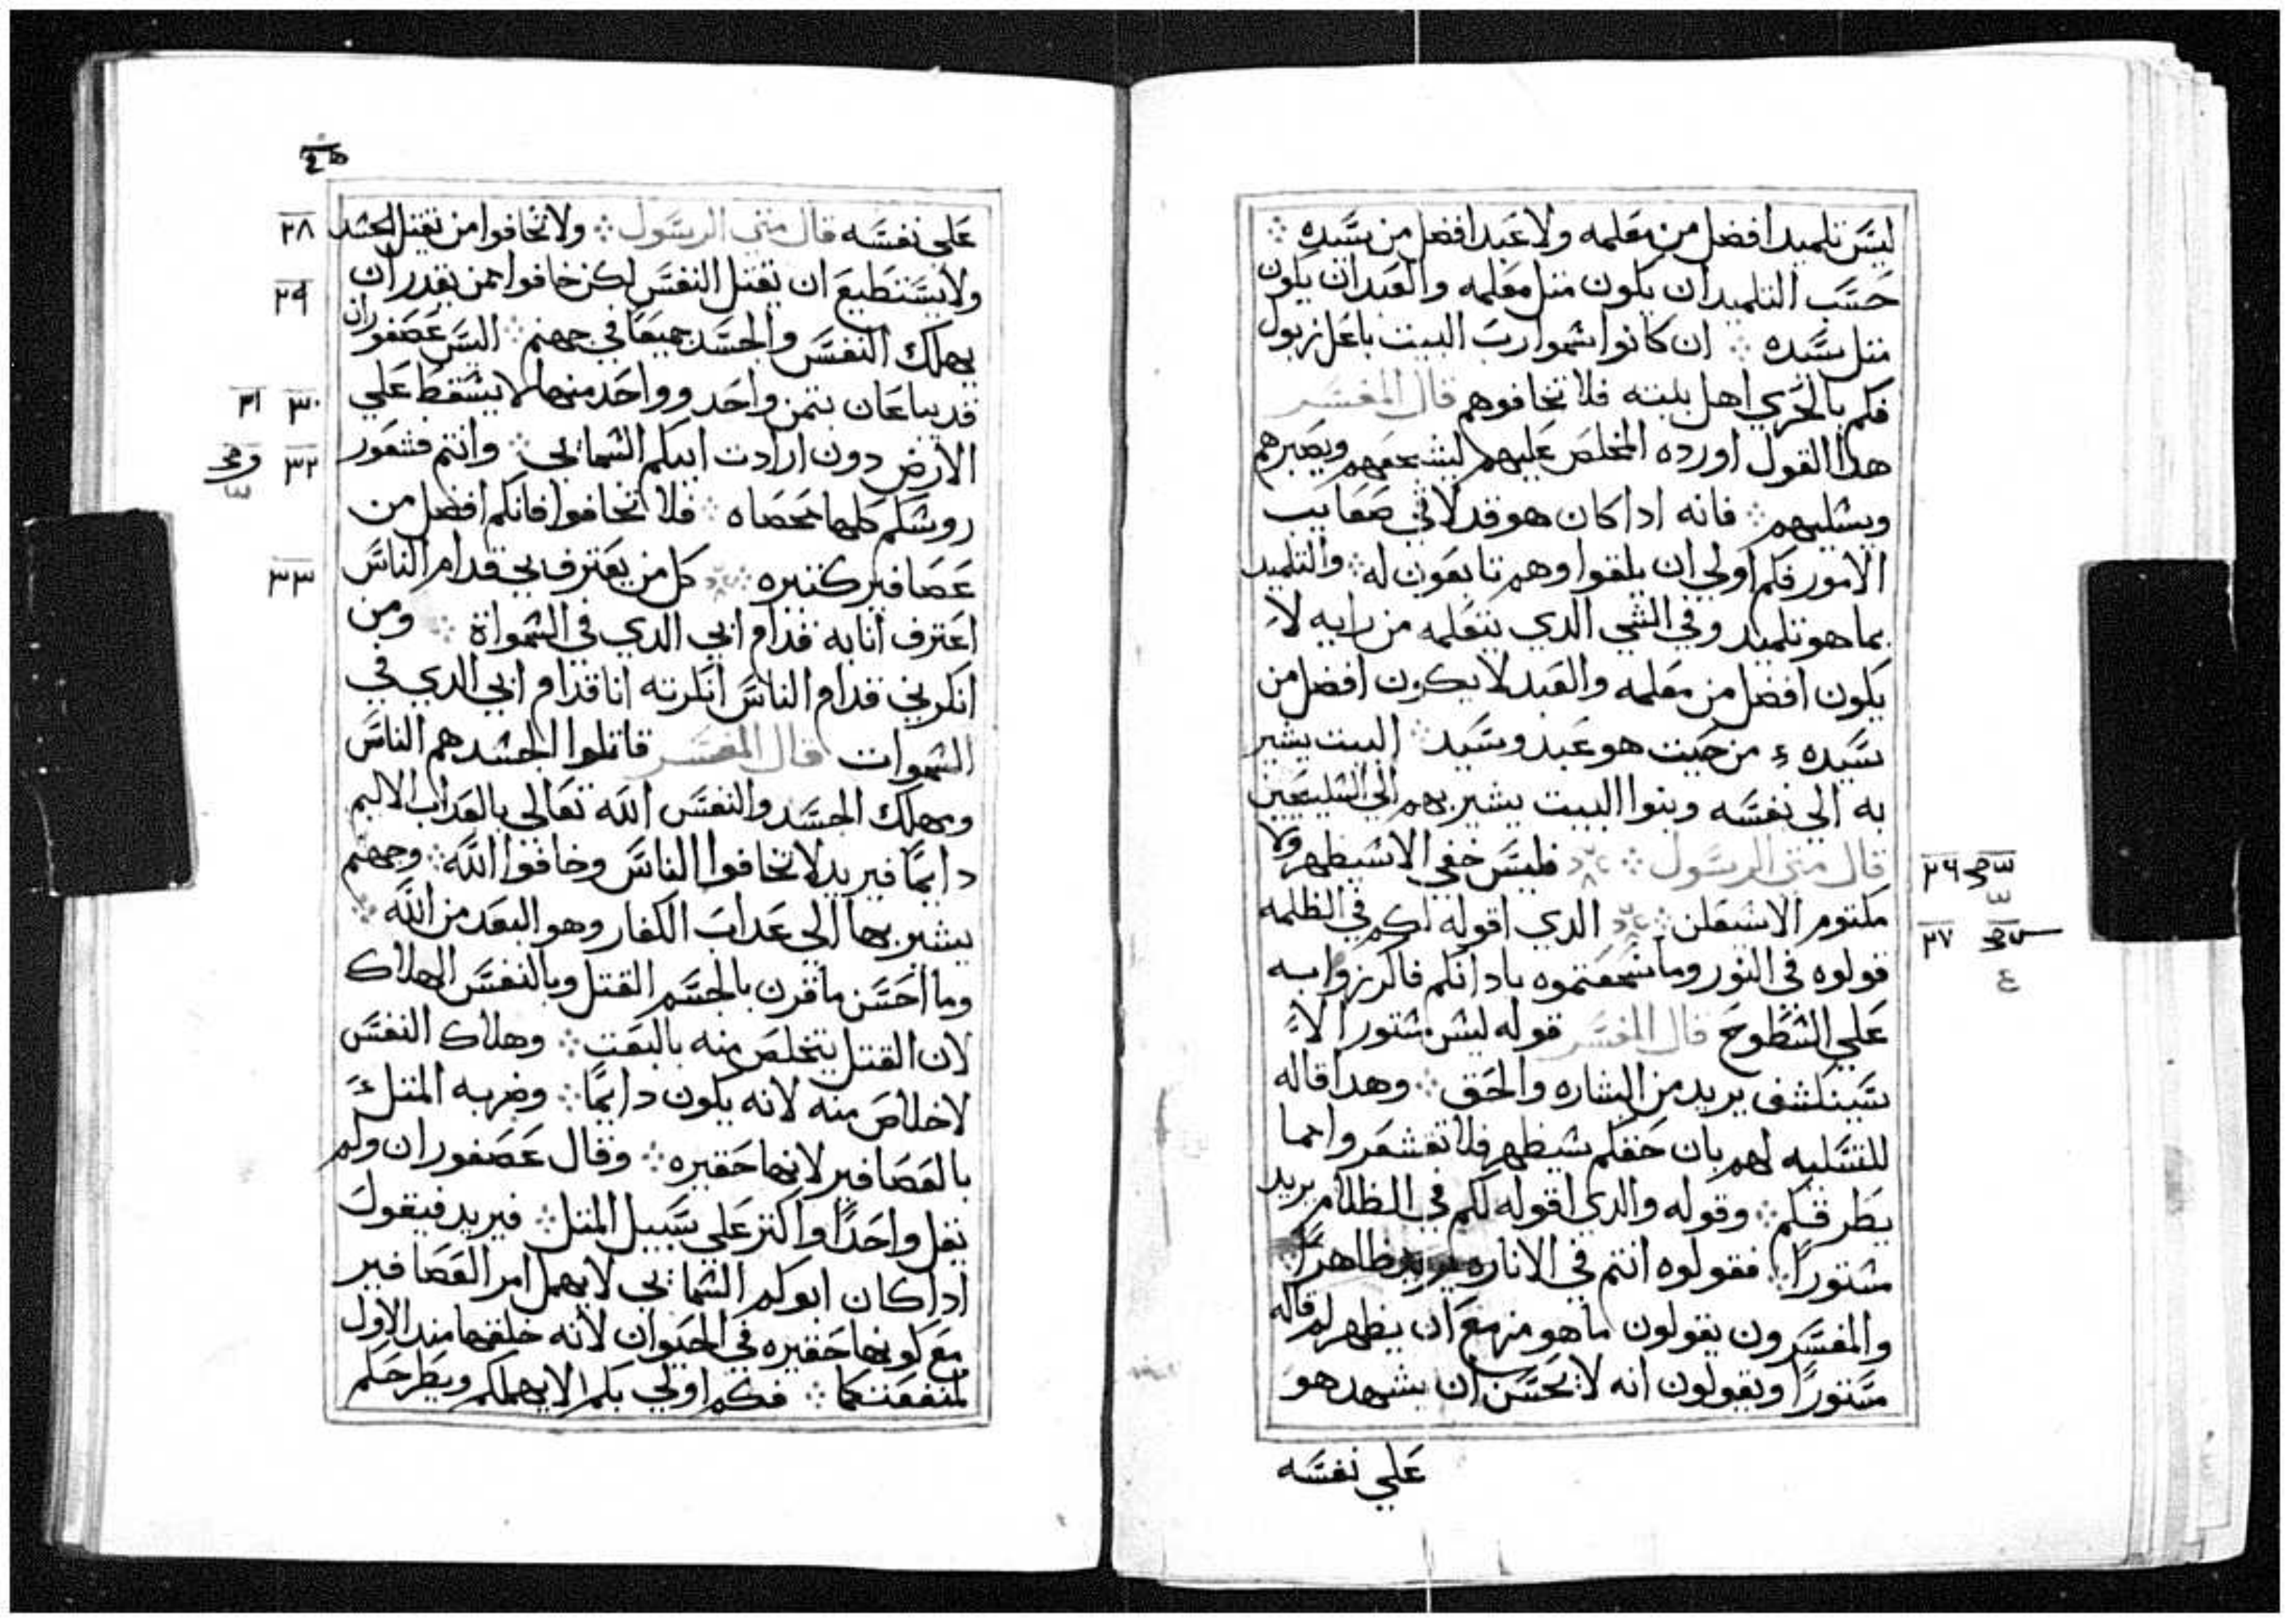 ليس تلميد افضل من معلمه ولا عبد افضل من سيده
حسب التلميد ان يكون متل معلمه والعبد ان يكون
متل سيده ان كانوا سموا رب البيت باعل زبول
فكم بالحري اهل بيته فلا تخافوهم قال المفسر
هدا القول اورده المخلص عليهم ليشجعهم ويصبرهم
ويسليهم فانه ادا كان هو قد لاقي صعايب
الامور فكم اولي ان يلقوا وهم تابعون له والتلميد
بما هو تلميد وفي الشي الدي يتعلمه من رايه لا
يكون افضل من معلمه والعبد لا يكون افضل من
سيده من حيت هو عبد وسيد البيت يشير
به الي نفسه وبنوا البيت يشير بهم الي السليحين
قال متي الرسول فليس خفي الا سيظهر ولا
مكتوم الا سيعلن الدي اقوله لكم في الظلمه
قولوه في النور وما سمعتموه بادانكم فاكرزوا به
علي السطوح قال المفسر قوله ليس مستور الا
سينكشف يريد من البشاره والحق وهدا قاله
للتسليه لهم بان حقكم سيظهر فلا تقشعروا مما
يطرقكم وقوله والدي اقوله لكم في الظلام يريد
مستورا فقولوه انتم في الاناره يريد ظاهرا
والمفسرون يقولون ما هو مزمع ان يظهر لم قاله
مستورا ويقولون انه لا يحسن ان يشهد هو
علي نفسه
٢٦
٢٧ ٤
علي نفسه قال متي الرسول ولا تخافوا من يقتل الجسد
ولا يستطيع ان يقتل النفس لكن خافوا ممن يقدر ان
يهلك النفس والجسد جميعا في جهنم اليس عصفوران
قد يباعان بتمن واحد وواحد منهما لا يسقط علي
الارض دون ارادت ابيكم السمايي وانتم فشعور
روسكم كلها محصاه فلا تخافوا فانكم افضل من
عصافير كتيره كل من يعترف بي قدام الناس
اعترف انا به قدام ابي الدي في السمواة ومن
انكرني قدام الناس انكرته انا قدام ابي الدي في
السموات قال المفسر قاتلوا الجسد هم الناس
ومهلك الجسد والنفس الله تعالي بالعداب الاليم
دايما فيريد لا تخافوا الناس وخافوا الله وجهنم
يشير بها الي عداب الكفار وهو البعد من الله
وما احسن ما قرن بالجسم القتل وبالنفس الهلاك
لان القتل يتخلص منه بالبعت وهلاك النفس
لا خلاص منه لانه يكون دايما وضربه المتل
بالعصافير لانها حقيره وقال عصفوران ولم
يقل واحدا او اكتر علي سبيل المتل فيريد فيقول
ادا كان ابوكم السمايي لا يهمل امر العصافير
مع كونها حقيره في الحيوان لانه خلقها مند الاول
لمنفعتكما فكم اولي بكم الا يهملكم ويطرحكم
٢٨
٢٩
٣٠ ٣١
٣٢
٣٣